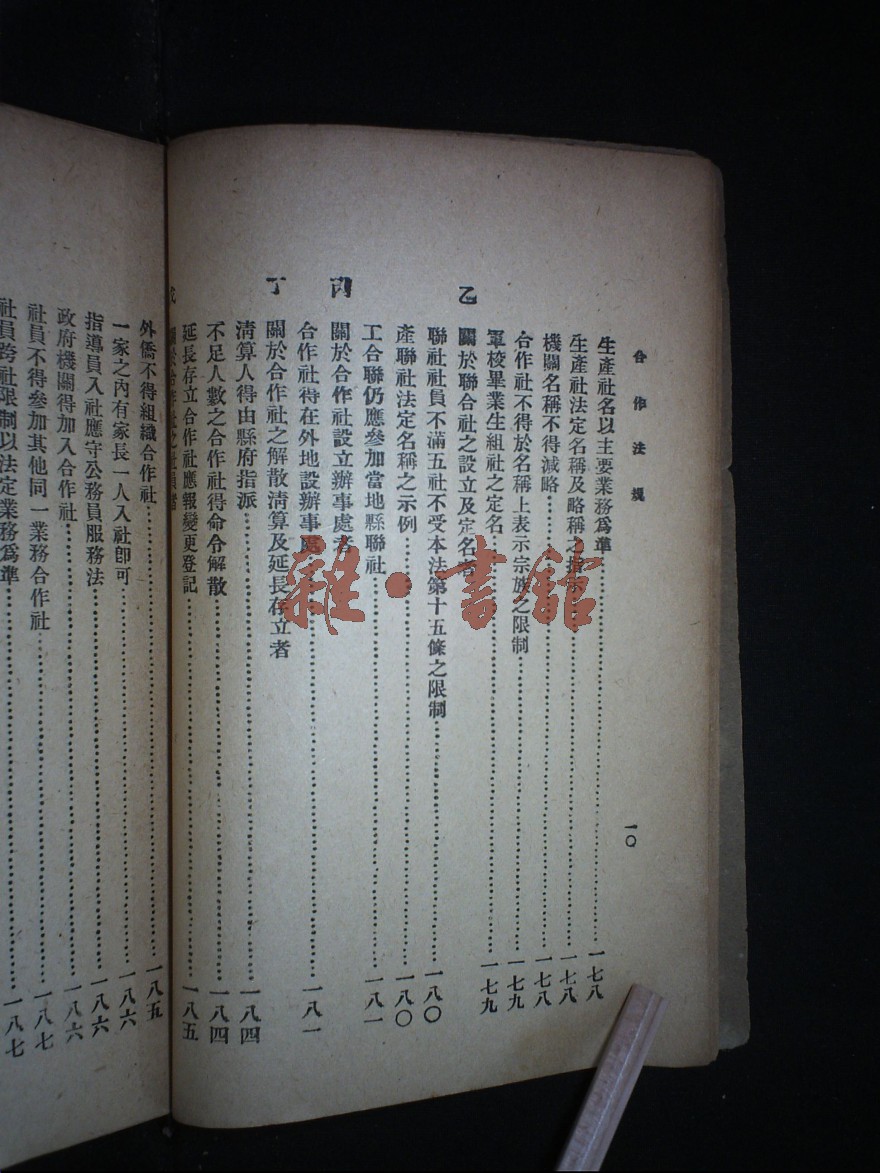 合作法規
一〇
生產社名以主要業務為準……一七八
生產社法定名稱及略稱之指示……一七八
機關名稱不得減略……一七八
合作社不得於名稱上表示宗族之限制……一七九
軍校畢業生組社之定名……一七九
乙 關於聯合社之設立及定名者
聯社社員不滿五社不受本法第十五條之限制……一八〇
產聯社法定名稱之示例……一八〇
工合聯仍應參加當地縣聯社……一八一
丙 關於合作社設立辦事處者
合作社得在外地設辦事處……一八一
丁 關於合作社之解散清算及延長存立者
清算人得由縣府指派……一八四
不足人數之合作社得命令解散……一八四
延長存立合作社應報變更登記……一八五
戊 關於合作社之社員者
外僑不得組織合作社……一八五
一家之內有家長一人入社卽可……一八六
指導員入社應守公務員服務法……一八六
政府機關得加入合作社……一八六
社員不得參加其他同一業務合作社……一八七
社員跨社限制以法定業務為準……一八七
雜·書館